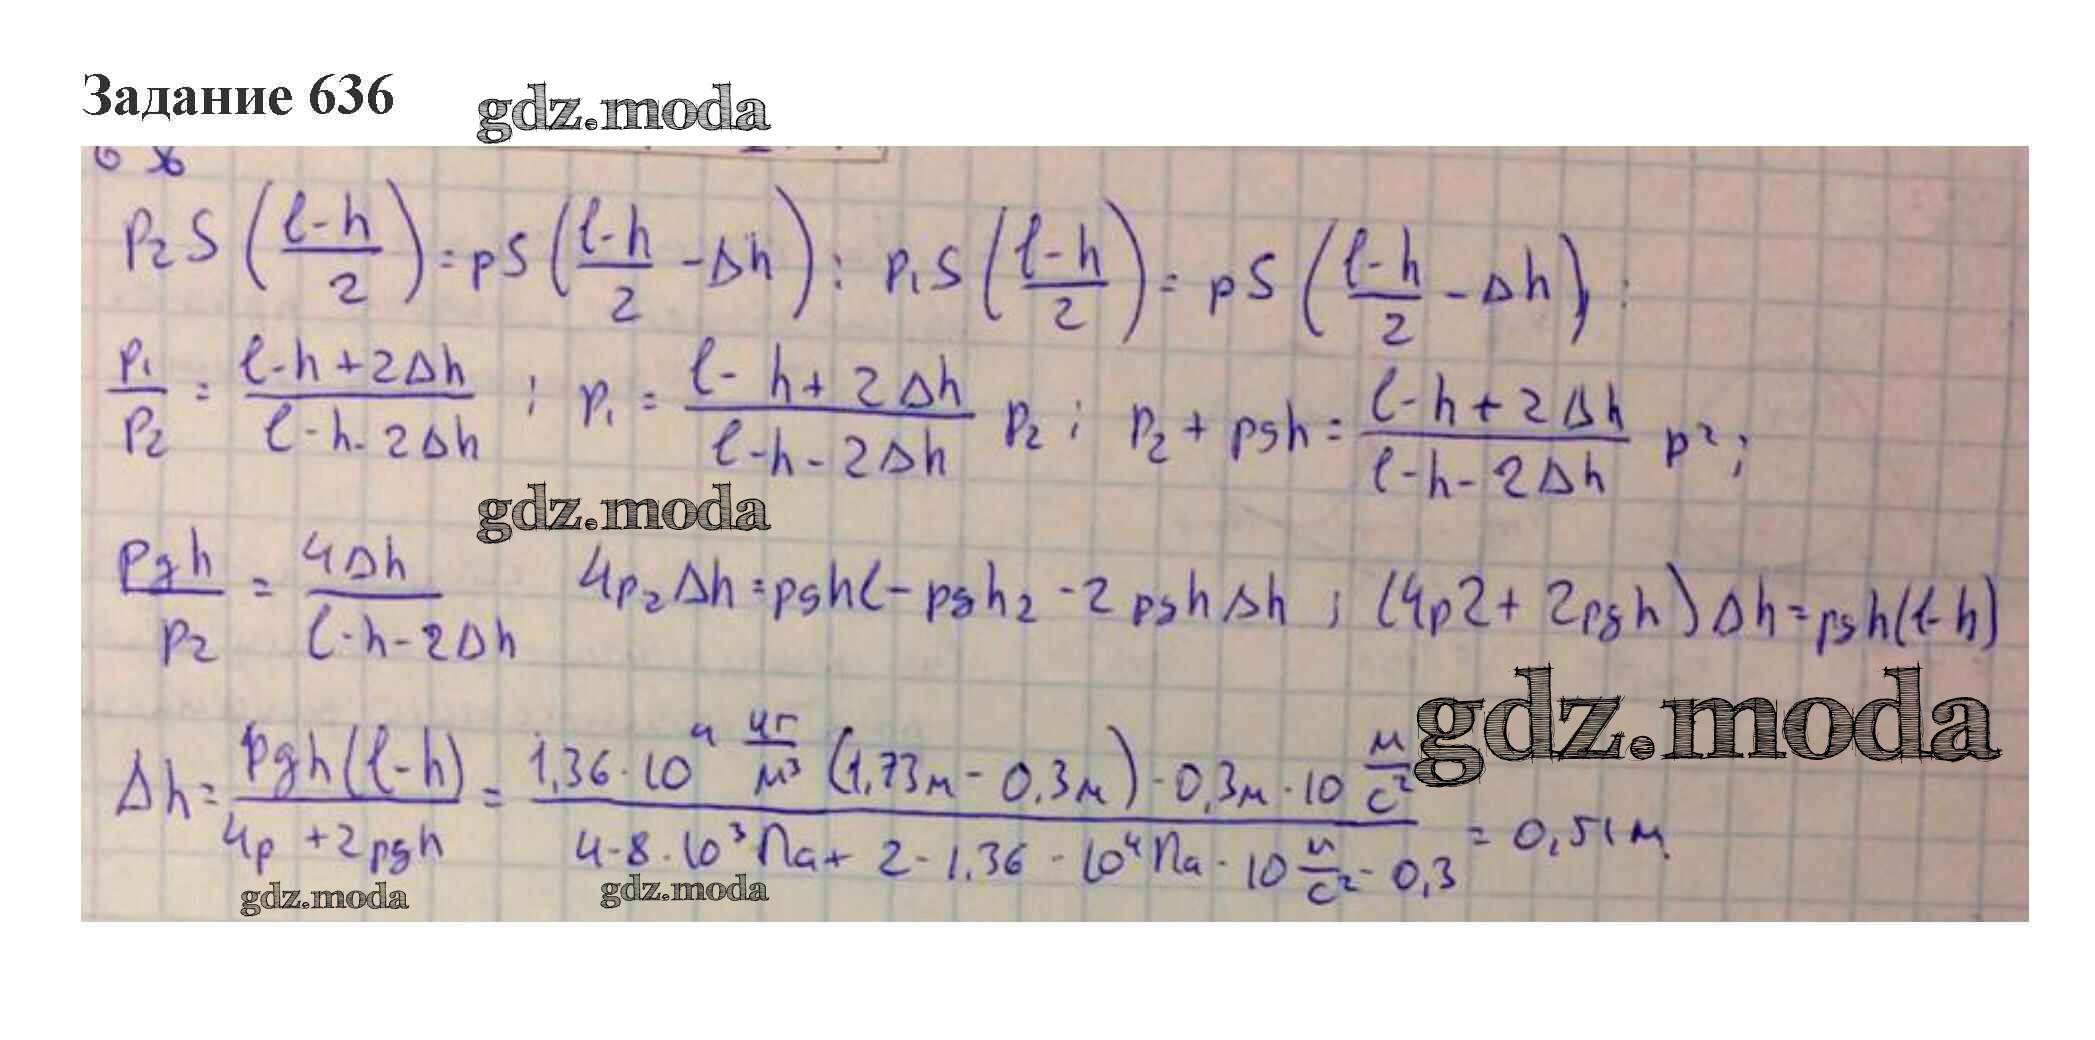 Задание 636
gdz.moda
636
P₂S((l-h)/2) = pS((l-h)/2 - Δh); p₁S((l-h)/2) = pS((l-h)/2 - Δh);
p₁/p₂ = (l-h+2Δh)/(l-h-2Δh); p₁ = (l-h+2Δh)/(l-h-2Δh) p₂; p₂ + pgh = (l-h+2Δh)/(l-h-2Δh) p²;
gdz.moda
pgh/p₂ = 4Δh/(l-h-2Δh) 4p₂Δh = pghl - pgh₂ - 2pghΔh; (4p2 + 2pgh)Δh = pgh(l-h)
gdz.moda
Δh = pgh(l-h)/(4p + 2pgh) = (1,36·10⁴ кг/м³ (1,73м - 0,3м)·0,3м·10 м/с²)/(4·8·10³Па + 2·1,36·10⁴Па·10 м/с²·0,3) = 0,51м
gdz.moda gdz.moda